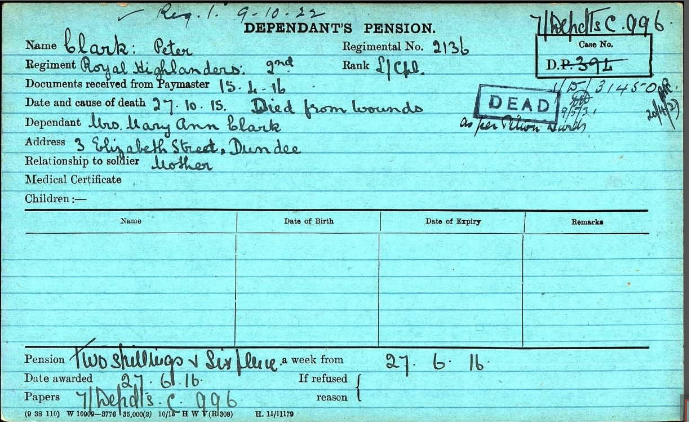 ✓ Reg. 1. 9-10-22
DEPENDANT'S PENSION.
7/Depdts C. 996
Name Clark: Peter Regimental No. 2136
Case No.
D.P. 394
Regiment Royal Highlanders. 2nd Rank L/Cpl.
Documents received from Paymaster 15.4.16
1/D/31450
Date and cause of death 27.10.15. Died from wounds
DEAD
Dependant Mrs. Mary Ann Clark
as per
Address 3 Elizabeth Street, Dundee
Relationship to soldier Mother
Medical Certificate
Children:—
Name Date of Birth Date of Expiry Remarks
Pension Two shillings & Six pence a week from 27. 6. 16.
Date awarded 27.6.16. If refused {
Papers 7/Depdts. C. 996 reason
(9 38 110) W 10909—3776 35,000(2) 10/15 H W V (R 308) H. 15/11179